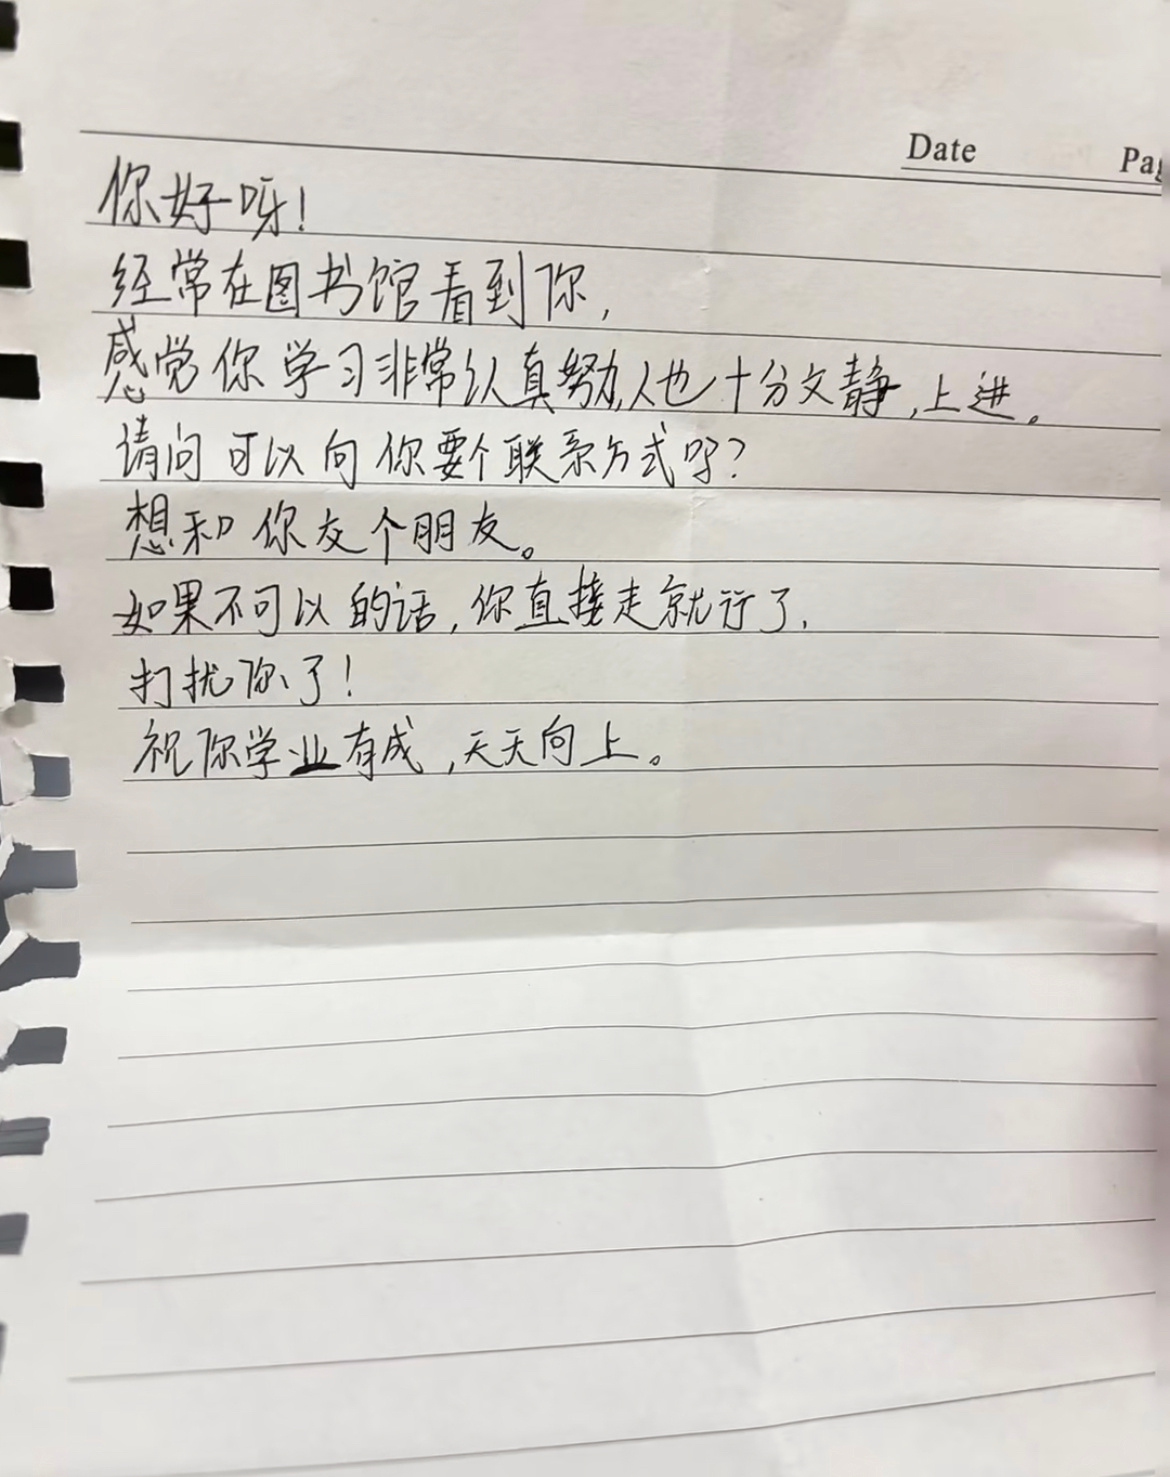 Date Pag
你好呀!
经常在图书馆看到你,
感觉你学习非常认真努力,人也十分文静,上进。
请问可以向你要个联系方式吗?
想和你交个朋友。
如果不可以的话,你直接走就行了,
打扰你了!
祝你学业有成,天天向上。